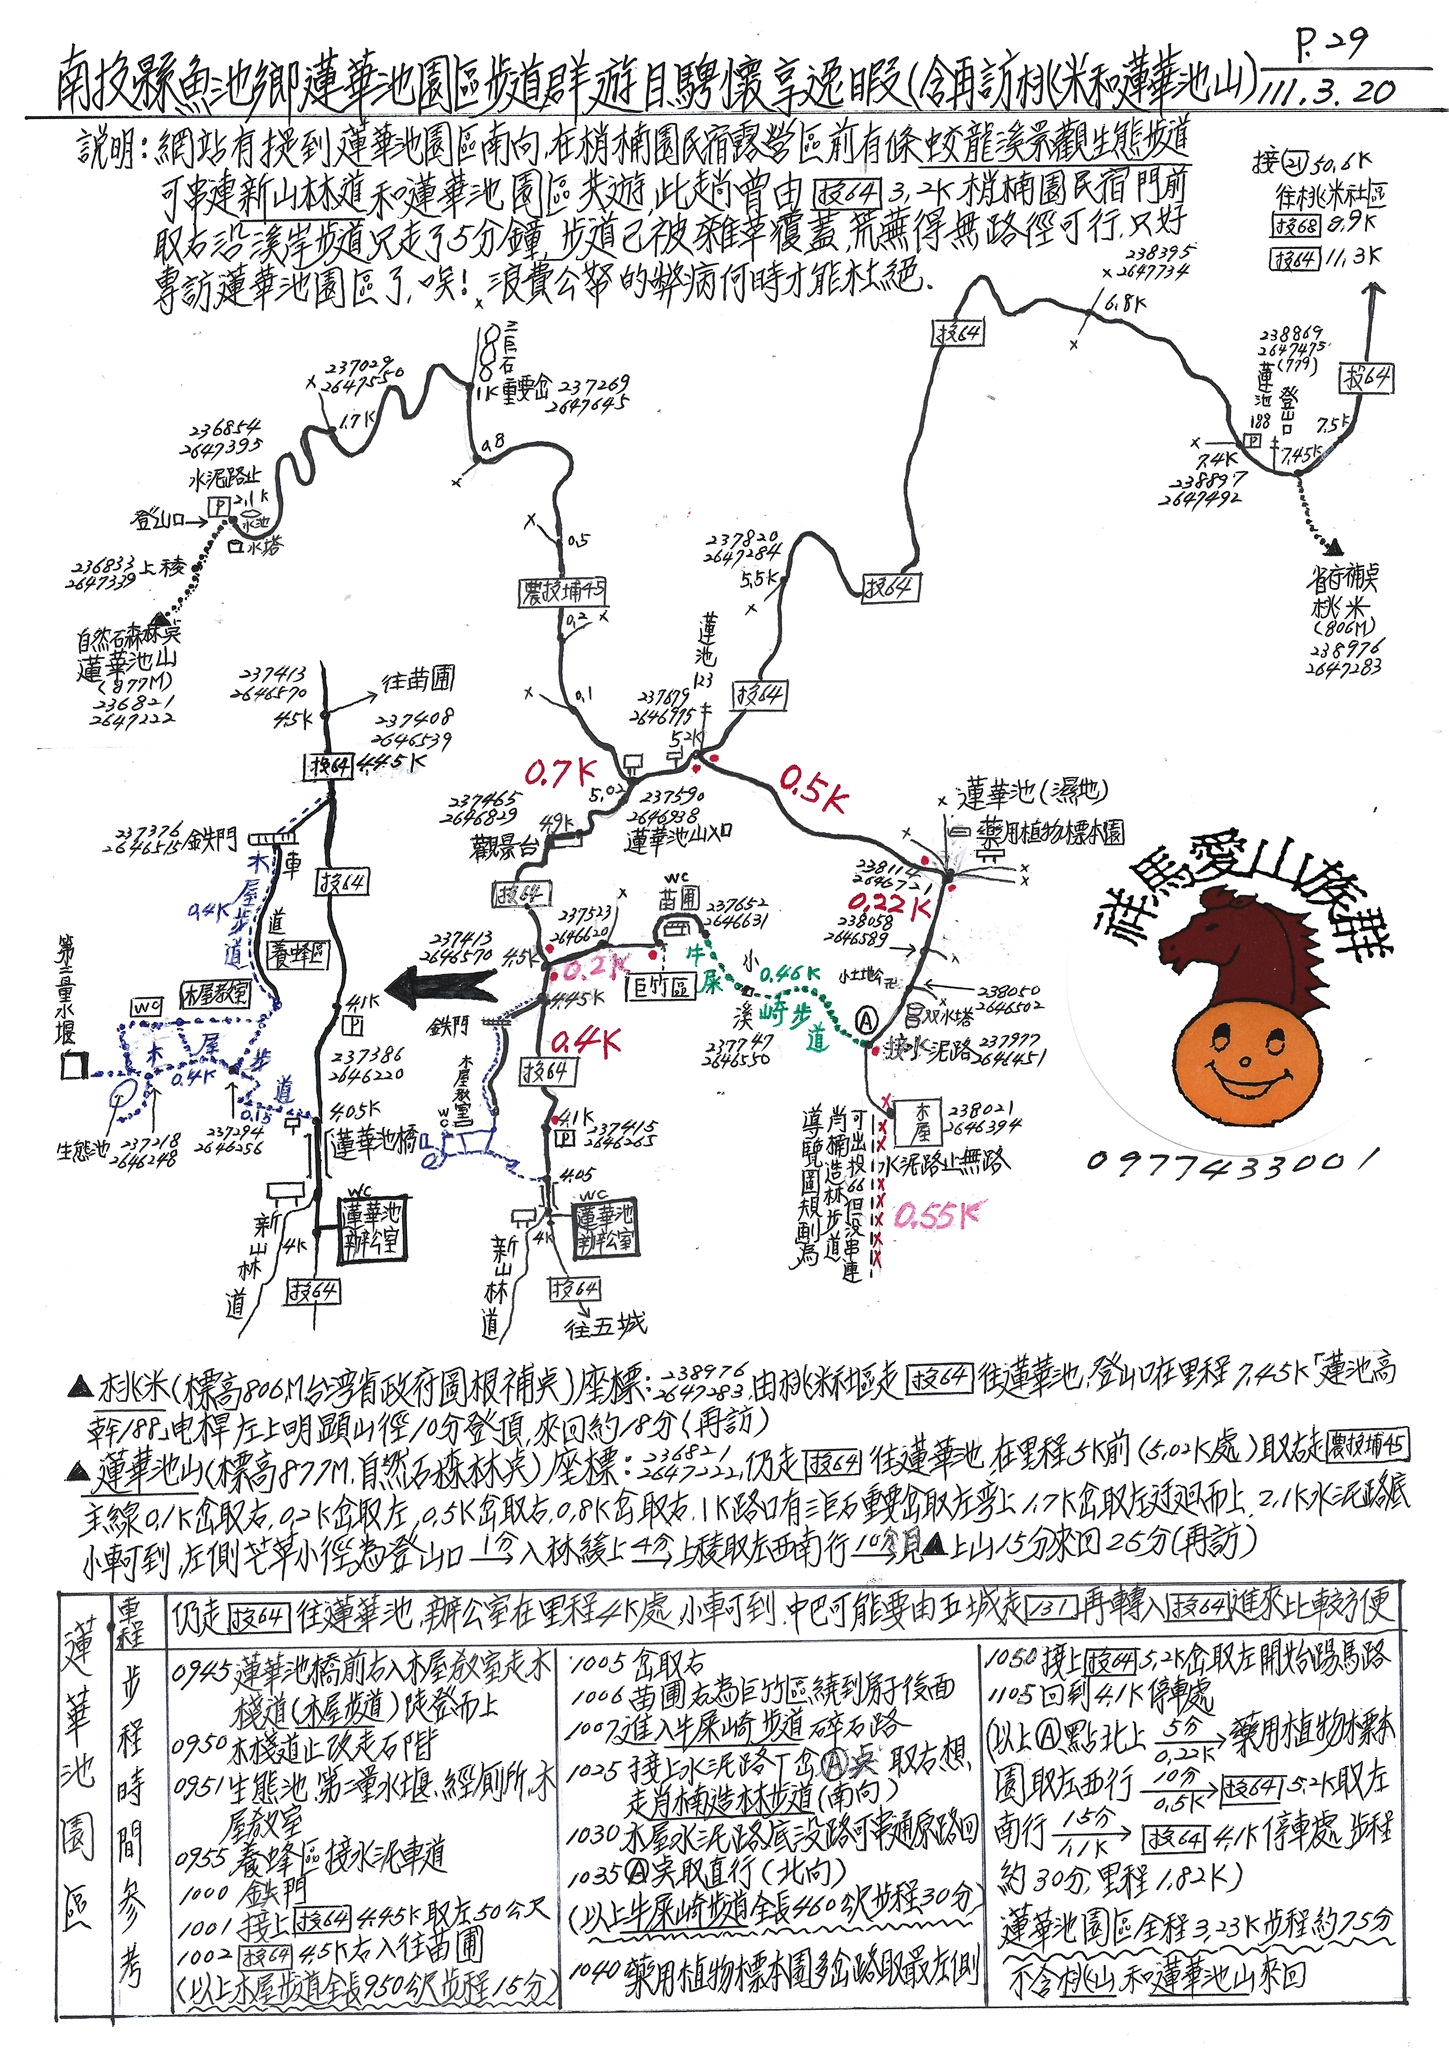 P.29
南投縣魚池鄉蓮華池園區步道群遊目騁懷享逸暇(含再訪桃米和蓮華池山)
111.3.20
說明:網站有提到蓮華池園區南向,在梢楠園民宿露營區前有條蛟龍溪景觀生態步道
可串連新山林道和蓮華池園區共遊,此趟曾由 投64 3.2K梢楠園民宿門前
取右沿溪岸步道只走了5分鐘,步道已被雜草覆蓋,荒蕪得無路徑可行,只好
專訪蓮華池園區了,唉!浪費公帑的弊病何時才能杜絕.
接㉑50.6K
往桃米社區
投68 8.9K
投64 11.3K
238395
2647734
6.8K
投64
238869
2647475
(779)
蓮池
188
登山口
投64
7.5K
7.45K
P
7.4K
238897
2647492
省府補点
桃米
(806M)
238976
2647283
三巨石
1K重要岔
237269
2647645
237029
2647550
1.7K
0.8
236854
2647395
水泥路止
P 2.1K
登山口
水池
水塔
236833
2647339
上稜
自然石森林点
蓮華池山
(877M)
236821
2647222
0.5
農投埔45
0.2
0.1
237820
2647284
5.5K
投64
蓮池
123
237679
2646975
5.2K
投64
0.7K
5.02
237590
2646938
蓮華池山入口
0.5K
237413
2646570
4.5K
往苗圃
237408
2646539
投64 4.45K
237376
2646515
鉄門
木屋步道
0.4K
車道
投64
養蜂區
木屋教室
WC
第二量水堰
木屋步道
0.4K
0.15
生態池
237218
2646248
237294
2646256
4.1K
P
237386
2646220
4.05K
蓮華池橋
WC
蓮華池
辦公室
新山林道
4K
投64
237465
2646829
4.9K
觀景台
投64
237413
2646570
4.5K
237523
2646620
0.2K
WC
苗圃
巨竹區
237652
2646631
牛屎崎步道
0.46K
小溪
237747
2646550
4.45K
鉄門
0.4K
投64
木屋教室
WC
4.1K
P
237415
2646265
4.05
WC
蓮華池
辦公室
4K
新山林道
投64
往五城
蓮華池(濕地)
藥用植物標本園
238114
2646721
0.22K
238058
2646589
小土地公
238050
2646502
双水塔
Ⓐ
接水泥路
237977
2646451
木屋
238021
2646394
水泥路止無路
0.55K
導覽圖規劃為
肖楠造林步道
可出投66但沒串連
祥馬愛山族群
0977433001
▲桃米(標高806M台湾省政府圖根補点)座標:238976 2647283,由桃米社區走 投64 往蓮華池,登山口在里程7.45K「蓮池高
幹188」电桿左上明顯山徑10分登頂,來回約18分(再訪)
▲蓮華池山(標高877M,自然石森林点)座標:236821 2647222,仍走 投64 往蓮華池,在里程5K前(5.02K處)取右走 農投埔45
主線0.1K岔取右,0.2K岔取左,0.5K岔取右,0.8K岔取右,1K路口有三巨石重要岔取左弯上,1.7K岔取左迂迴而上,2.1K水泥路底
小車可到,左側芒草小徑為登山口 1分→入林緩上 4分→上稜取左西南行 10分見▲上山15分來回25分(再訪)
蓮華池園區
里程步程時間參考
仍走 投64 往蓮華池,辦公室在里程4K處,小車可到,中巴可能要由五城走 131 再轉入 投64 進來比較方便
0945蓮華池橋前右入木屋教室走木
棧道(木屋步道)陡登而上
0950木棧道止改走石階
0951生態池,第二量水堰,經廁所,木
屋教室
0955養蜂區接水泥車道
1000鉄門
1001接上 投64 4.45K取左50公尺
1002 投64 4.5K右入往苗圃
(以上木屋步道全長950公尺步程15分)
1005岔取右
1006苗圃右為巨竹區繞到房子後面
1007進入牛屎崎步道碎石路
1025接上水泥路丁岔Ⓐ点 取右想
走肖楠造林步道(南向)
1030木屋水泥路底沒路可串通原路回
1035Ⓐ点取直行(北向)
(以上牛屎崎步道全長460公尺步程30分)
1040藥用植物標本園多岔路取最左側
1050接上 投64 5.2K岔取左開始踢馬路
1105回到4.1K停車處
(以上Ⓐ點北上 5分 0.22K→藥用植物標本
園取左西行 10分 0.5K→ 投64 5.2K取左
南行 15分 1.1K→ 投64 4.1K停車處 步程
約30分,里程1.82K)
蓮華池園區全程3.23K步程約75分
不含桃山和蓮華池山來回